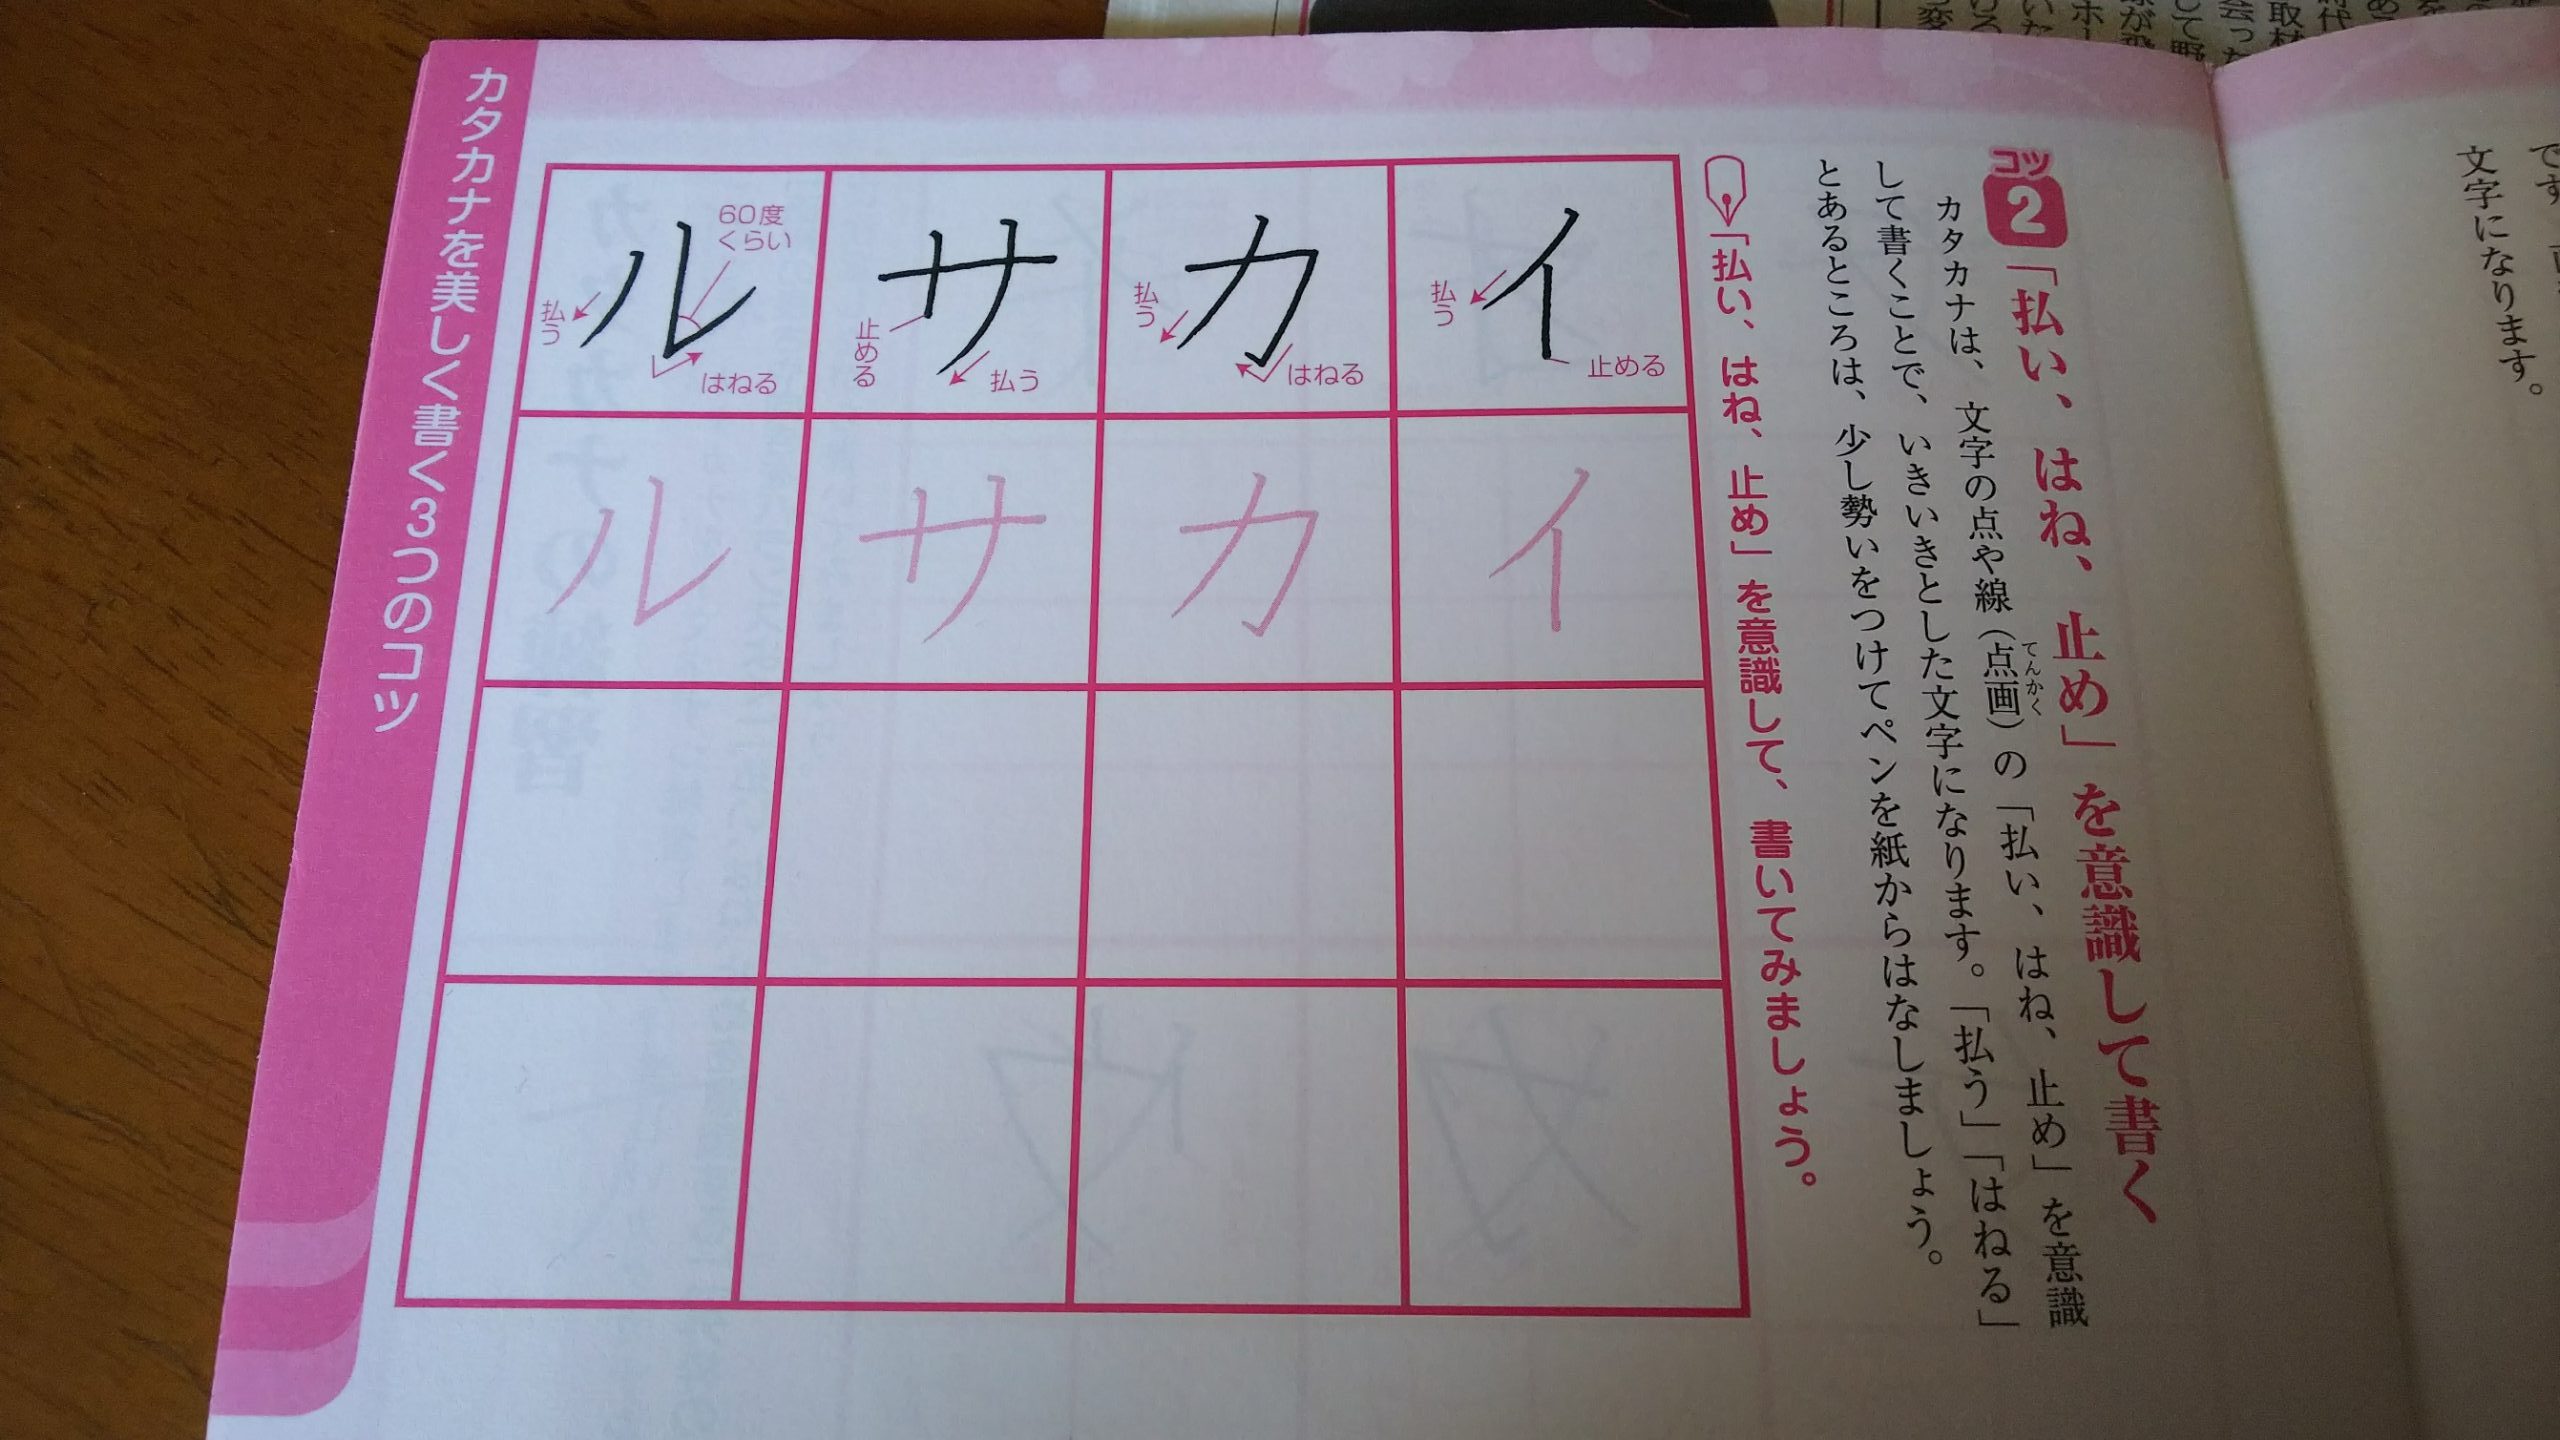 です。
文字になります。
コツ2 「払い、はね、止め」を意識して書く
カタカナは、文字の点や線(点画)の「払い、はね、止め」を意識
てんかく
して書くことで、いきいきとした文字になります。「払う」「はねる」
とあるところは、少し勢いをつけてペンを紙からはなしましょう。
「払い、はね、止め」を意識して、書いてみましょう。
イ
払う
止める
イ
カ
払う
はねる
カ
サ
止める
払う
サ
ル
60度
くらい
払う
はねる
ル
カタカナを美しく書く3つのコツ